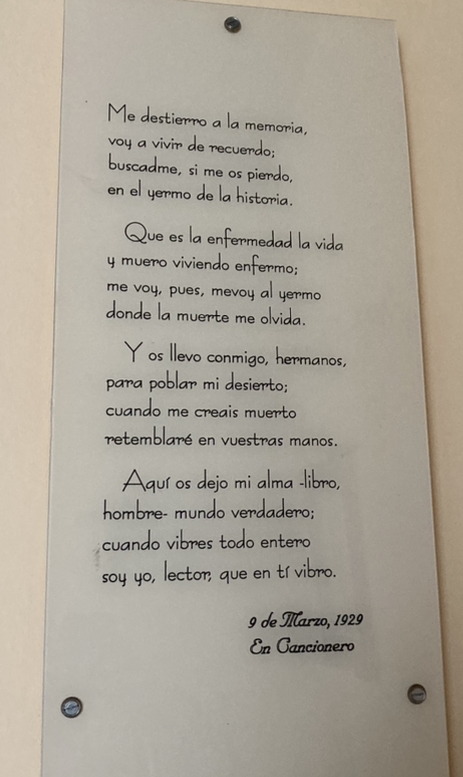 Me destierro a la memoria,
voy a vivir de recuerdo;
buscadme, si me os pierdo,
en el yermo de la historia.
Que es la enfermedad la vida
y muero viviendo enfermo;
me voy, pues, mevoy al yermo
donde la muerte me olvida.
Y os llevo conmigo, hermanos,
para poblar mi desierto;
cuando me creais muerto
retemblaré en vuestras manos.
Aquí os dejo mi alma -libro,
hombre- mundo verdadero;
cuando vibres todo entero
soy yo, lector, que en tí vibro.
9 de Marzo, 1929
En Cancionero